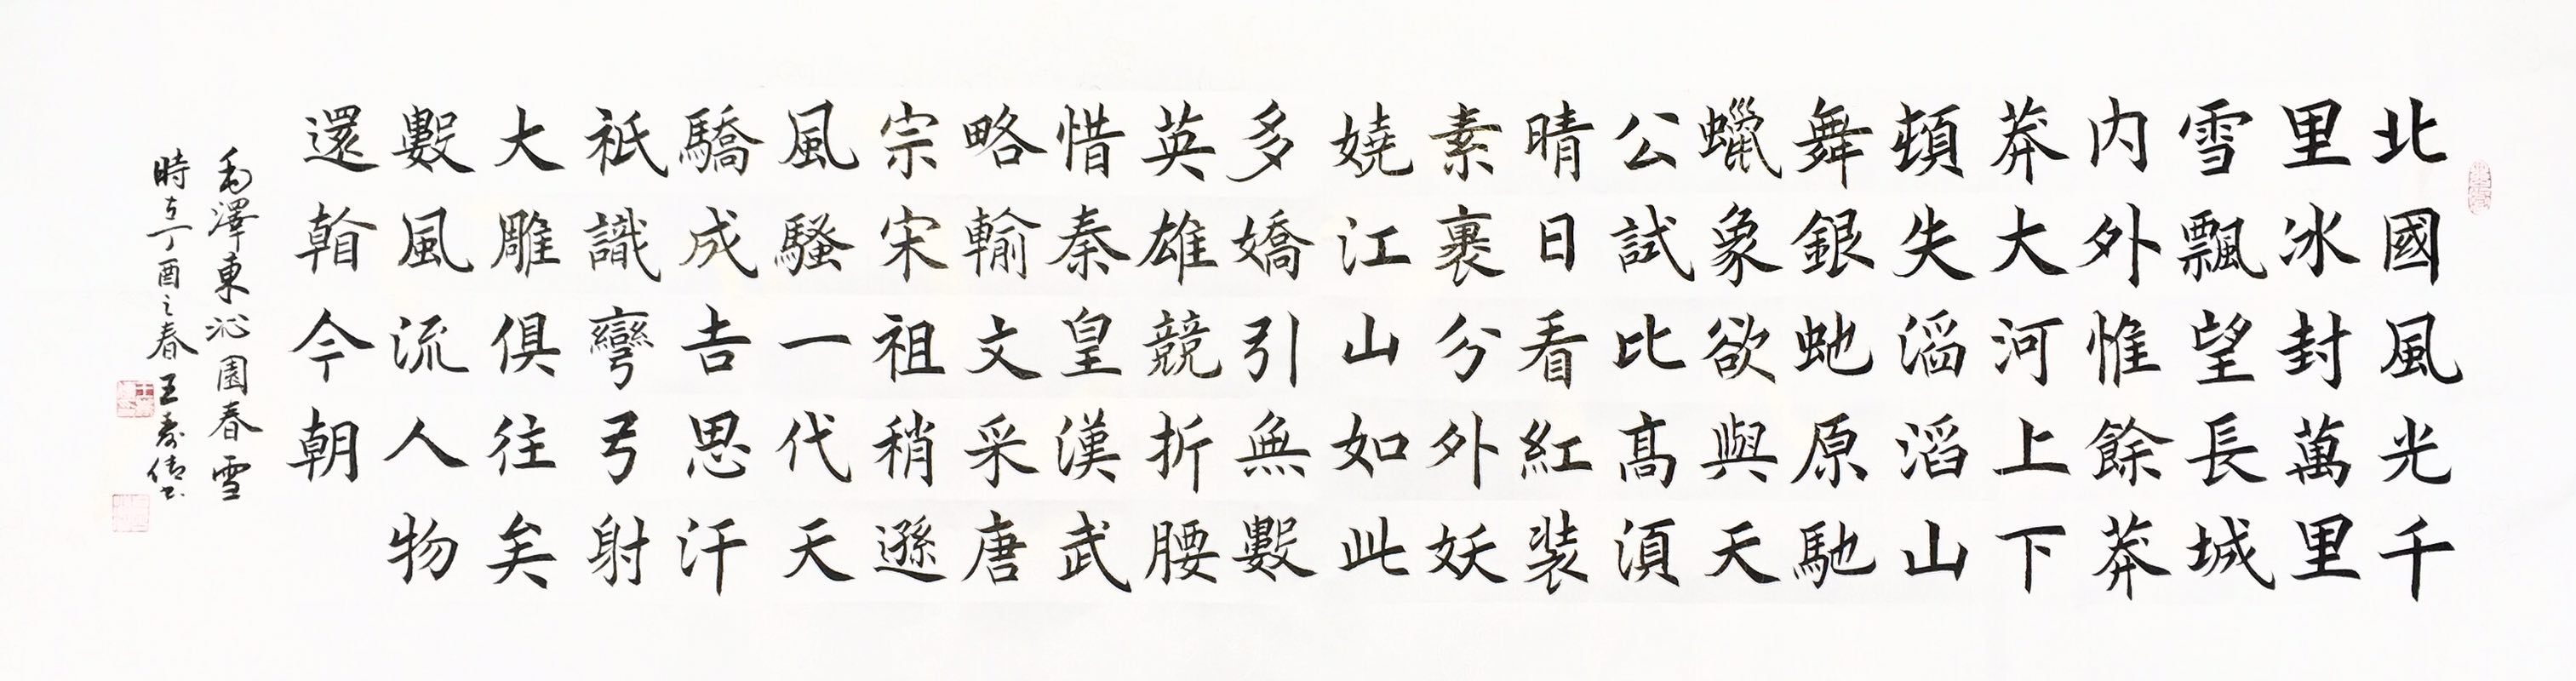 北國風光千
里冰封萬里
雪飄望長城
内外惟餘莽
莽大河上下
頓失滔滔山
舞銀虵原馳
蠟象欲與天
公試比髙湏
晴日看紅裝
素裹分外妖
嬈江山如此
多嬌引無數
英雄競折腰
惜秦皇漢武
略輸文采唐
宗宋祖稍遜
風騷一代天
驕成吉思汗
祇識彎弓射
大雕俱往矣
數風流人物
還看今朝
毛澤東沁園春雪
時在丁酉之春王壽倩书